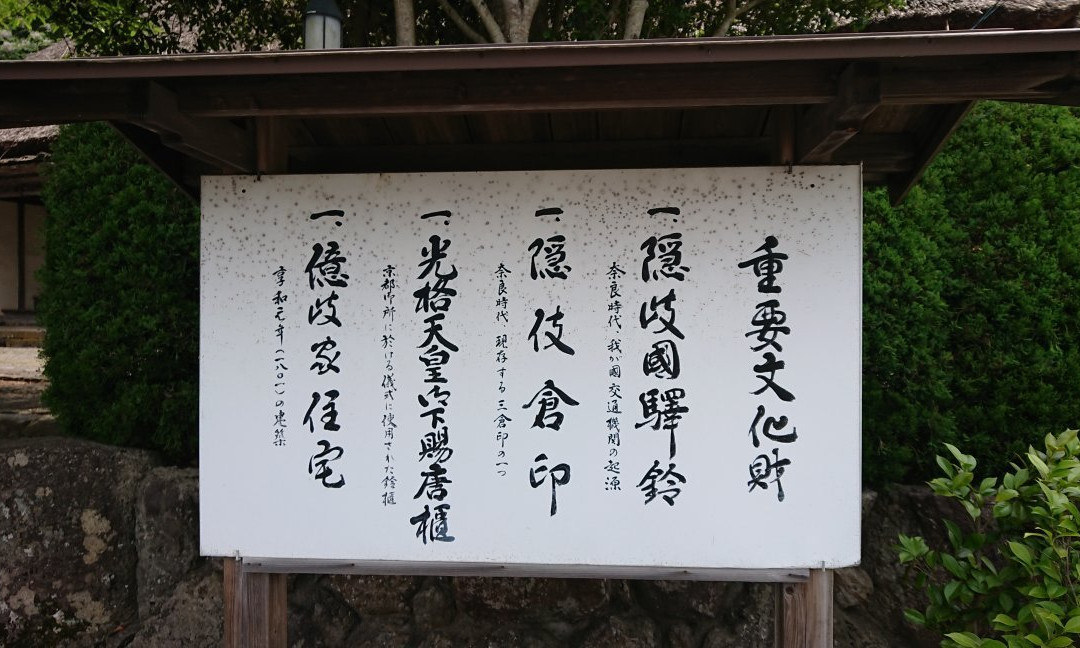 重要文化財
一、隠岐國驛鈴
奈良時代、我が国交通機関の起源
一、隠伎倉印
奈良時代、現存する三倉印の一つ
一、光格天皇御下賜唐櫃
京都御所に於ける儀式に使用された鈴櫃
一、億岐家住宅
享和元年(一八〇一)の建築